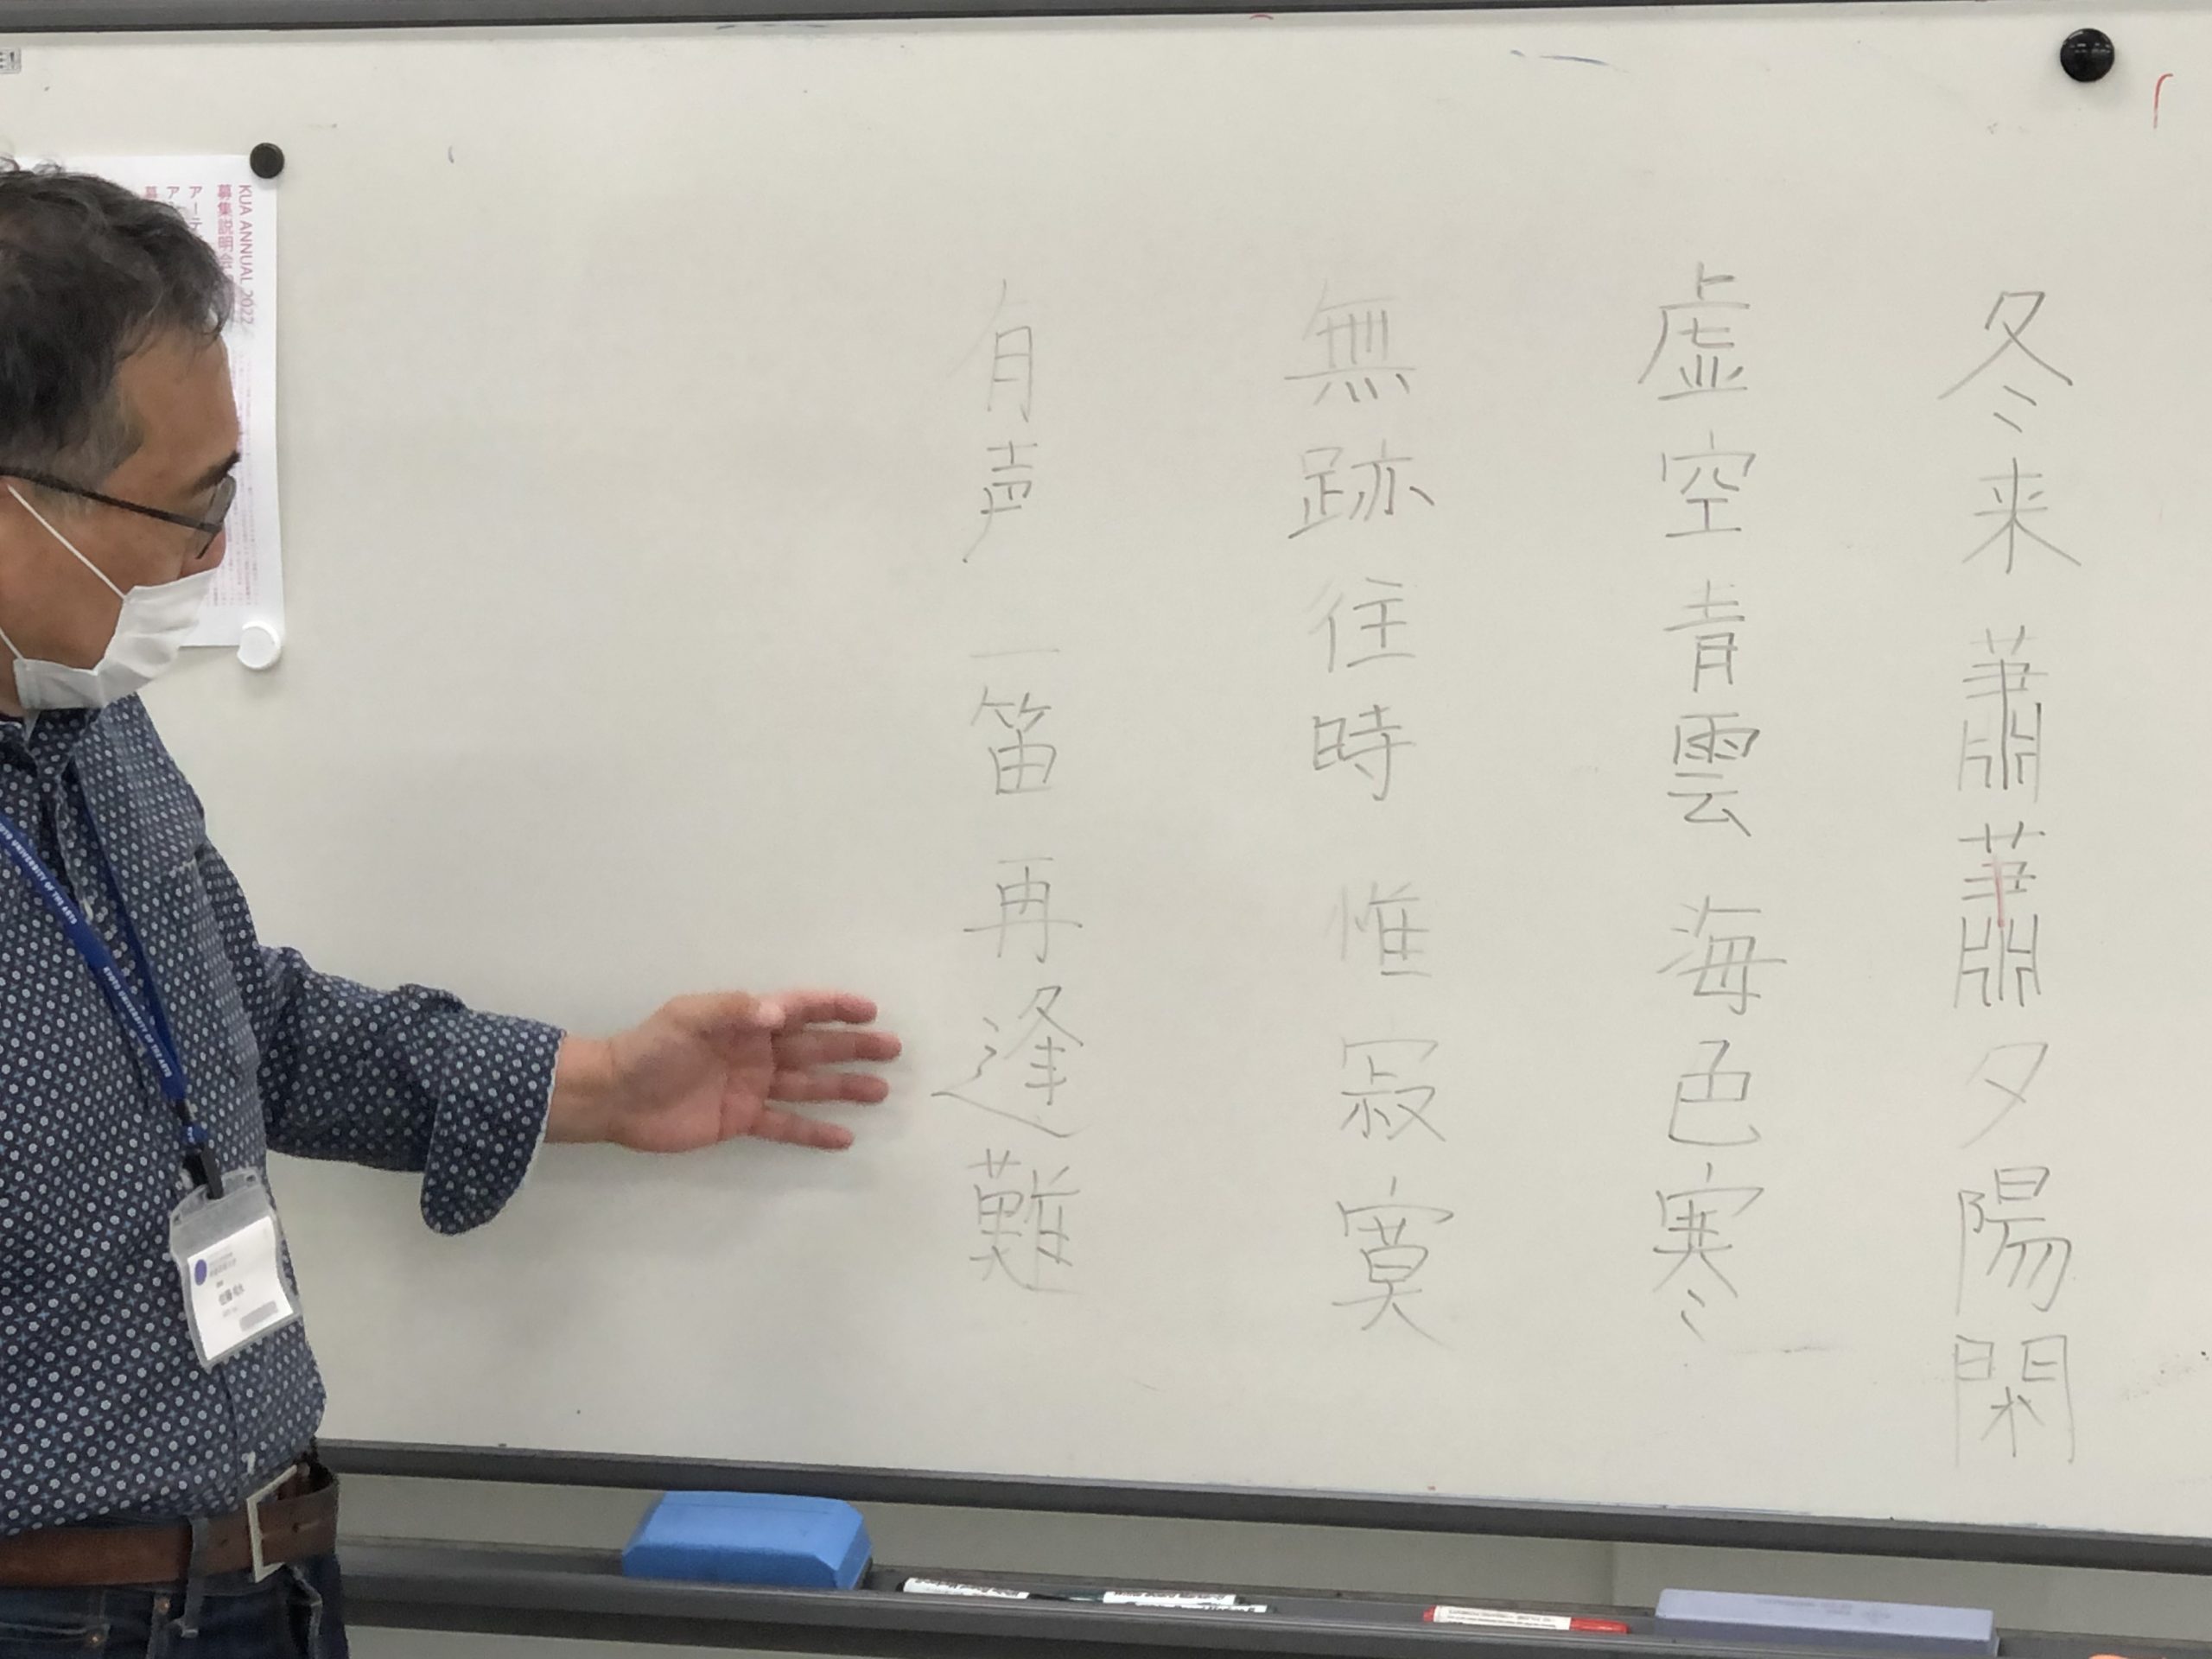 冬来蕭蕭夕陽閑
虚空青雲海色寒
無跡往時惟寂寞
有声一笛再逢難
KUA ANNUAL 2022
募集説明会
アーテ
KYOTO UNIVERSITY OF THE ARTS